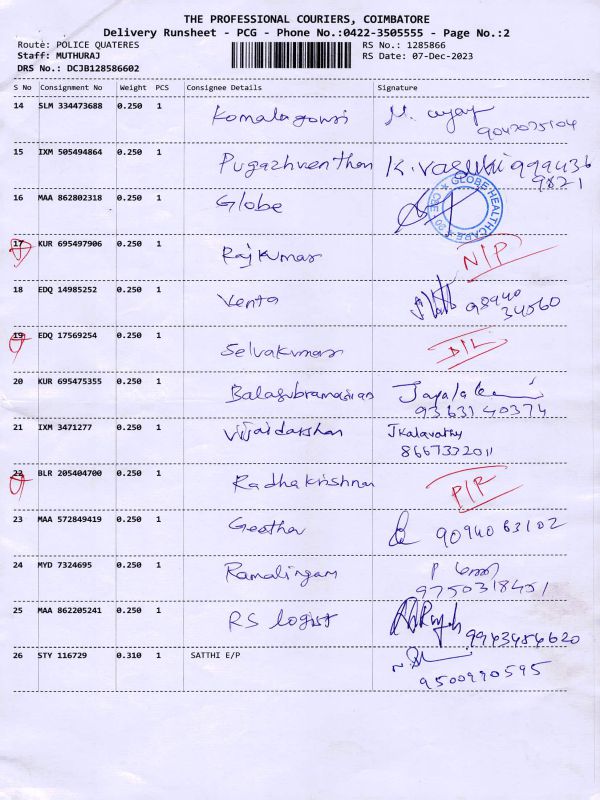 THE PROFESSIONAL COURIERS, COIMBATORE
Delivery Runsheet - PCG - Phone No.:0422-3505555 - Page No.:2
Route: POLICE QUATERES RS No.: 1285866
Staff: MUTHURAJ RS Date: 07-Dec-2023
DRS No.: DCJB128586602
S No Consignment No Weight PCS Consignee Details Signature
14 SLM 334473688 0.250 1 Komalagowsi
15 IXM 505494864 0.250 1 Pugazhventhan K. vasuki 999436
9821
16 MAA 862802318 0.250 1 Globe
GLOBE HEALTHCARE
17 KUR 695497906 0.250 1 Rajkumar N/P
18 EDQ 14985252 0.250 1 Venta 98940
34560
19 EDQ 17569254 0.250 1 Selvakumar D/L
20 KUR 695475355 0.250 1 Balasubramanian
93631 40374
21 IXM 3471277 0.250 1 Vijaidarshan Jkalavathy
8667332011
22 BLR 205404700 0.250 1 Radhakrishnan P/P
23 MAA 572849419 0.250 1 Geetha 90940 63102
24 MYD 7324695 0.250 1 Ramalingam
9750318451
25 MAA 862205241 0.250 1 RS logist
9943486620
26 STY 116729 0.310 1 SATTHI E/P
9500990595